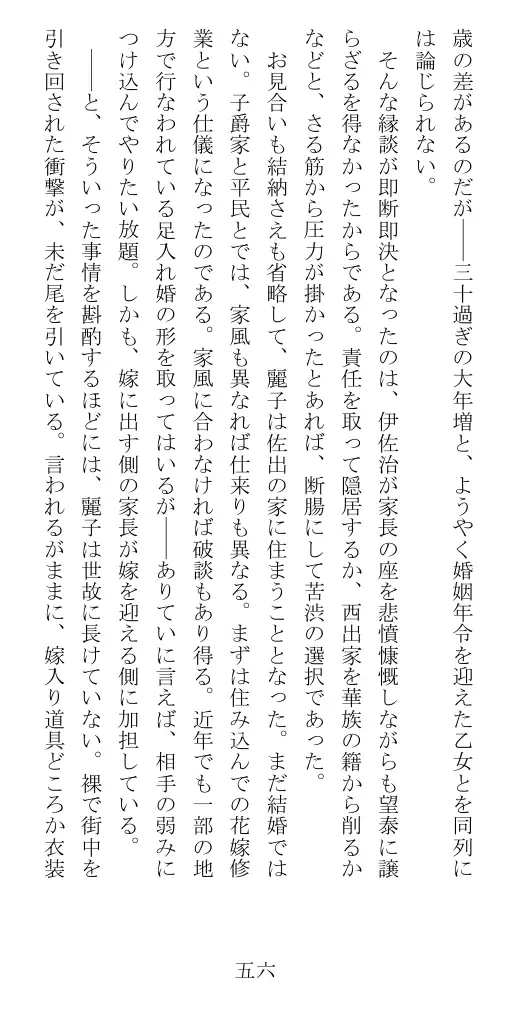 歳の差があるのだが――三十過ぎの大年増と、ようやく婚姻年令を迎えた乙女とを同列に
は論じられない。
　そんな縁談が即断即決となったのは、伊佐治が家長の座を悲憤慷慨しながらも望泰に譲
らざるを得なかったからである。責任を取って隠居するか、西出家を華族の籍から削るか
などと、さる筋から圧力が掛かったとあれば、断腸にして苦渋の選択であった。
　お見合いも結納さえも省略して、麗子は佐出の家に住まうこととなった。まだ結婚では
ない。子爵家と平民とでは、家風も異なれば仕来りも異なる。まずは住み込んでの花嫁修
業という仕儀になったのである。家風に合わなければ破談もあり得る。近年でも一部の地
方で行なわれている足入れ婚の形を取ってはいるが――ありていに言えば、相手の弱みに
つけ込んでやりたい放題。しかも、嫁に出す側の家長が嫁を迎える側に加担している。
　――と、そういった事情を斟酌するほどには、麗子は世故に長けていない。裸で街中を
引き回された衝撃が、未だ尾を引いている。言われるがままに、嫁入り道具どころか衣装
五六